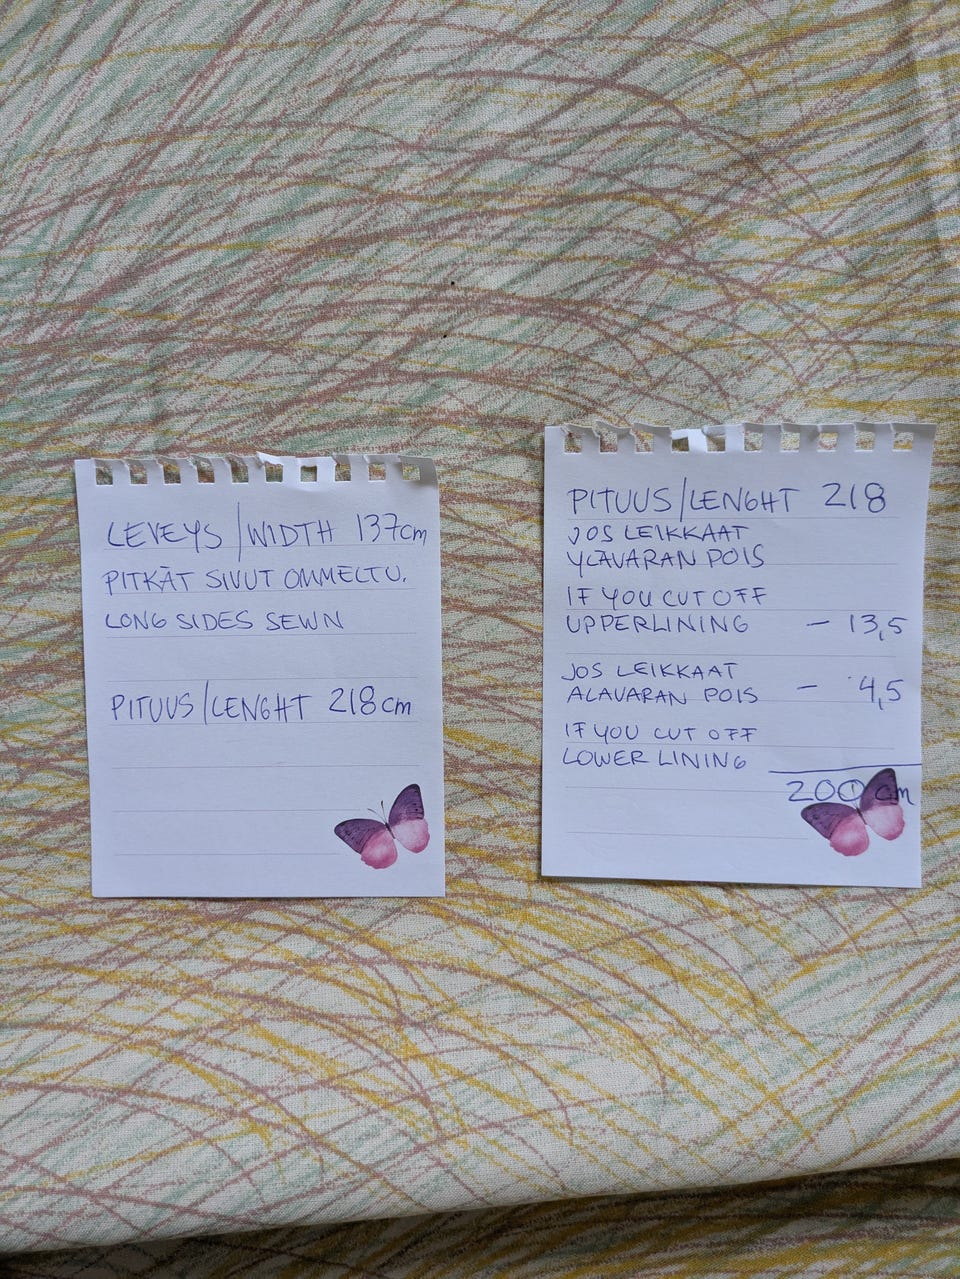 LEVEYS/WIDTH 137cm
PITKÄT SIVUT OMMELTU.
LONG SIDES SEWN
PITUUS/LENGHT 218cm
PITUUS/LENGHT 218
JOS LEIKKAAT
YLÄVARAN POIS
IF YOU CUT OFF
UPPERLINING - 13,5
JOS LEIKKAAT
ALAVARAN POIS - 4,5
IF YOU CUT OFF
LOWER LINING
200 cm